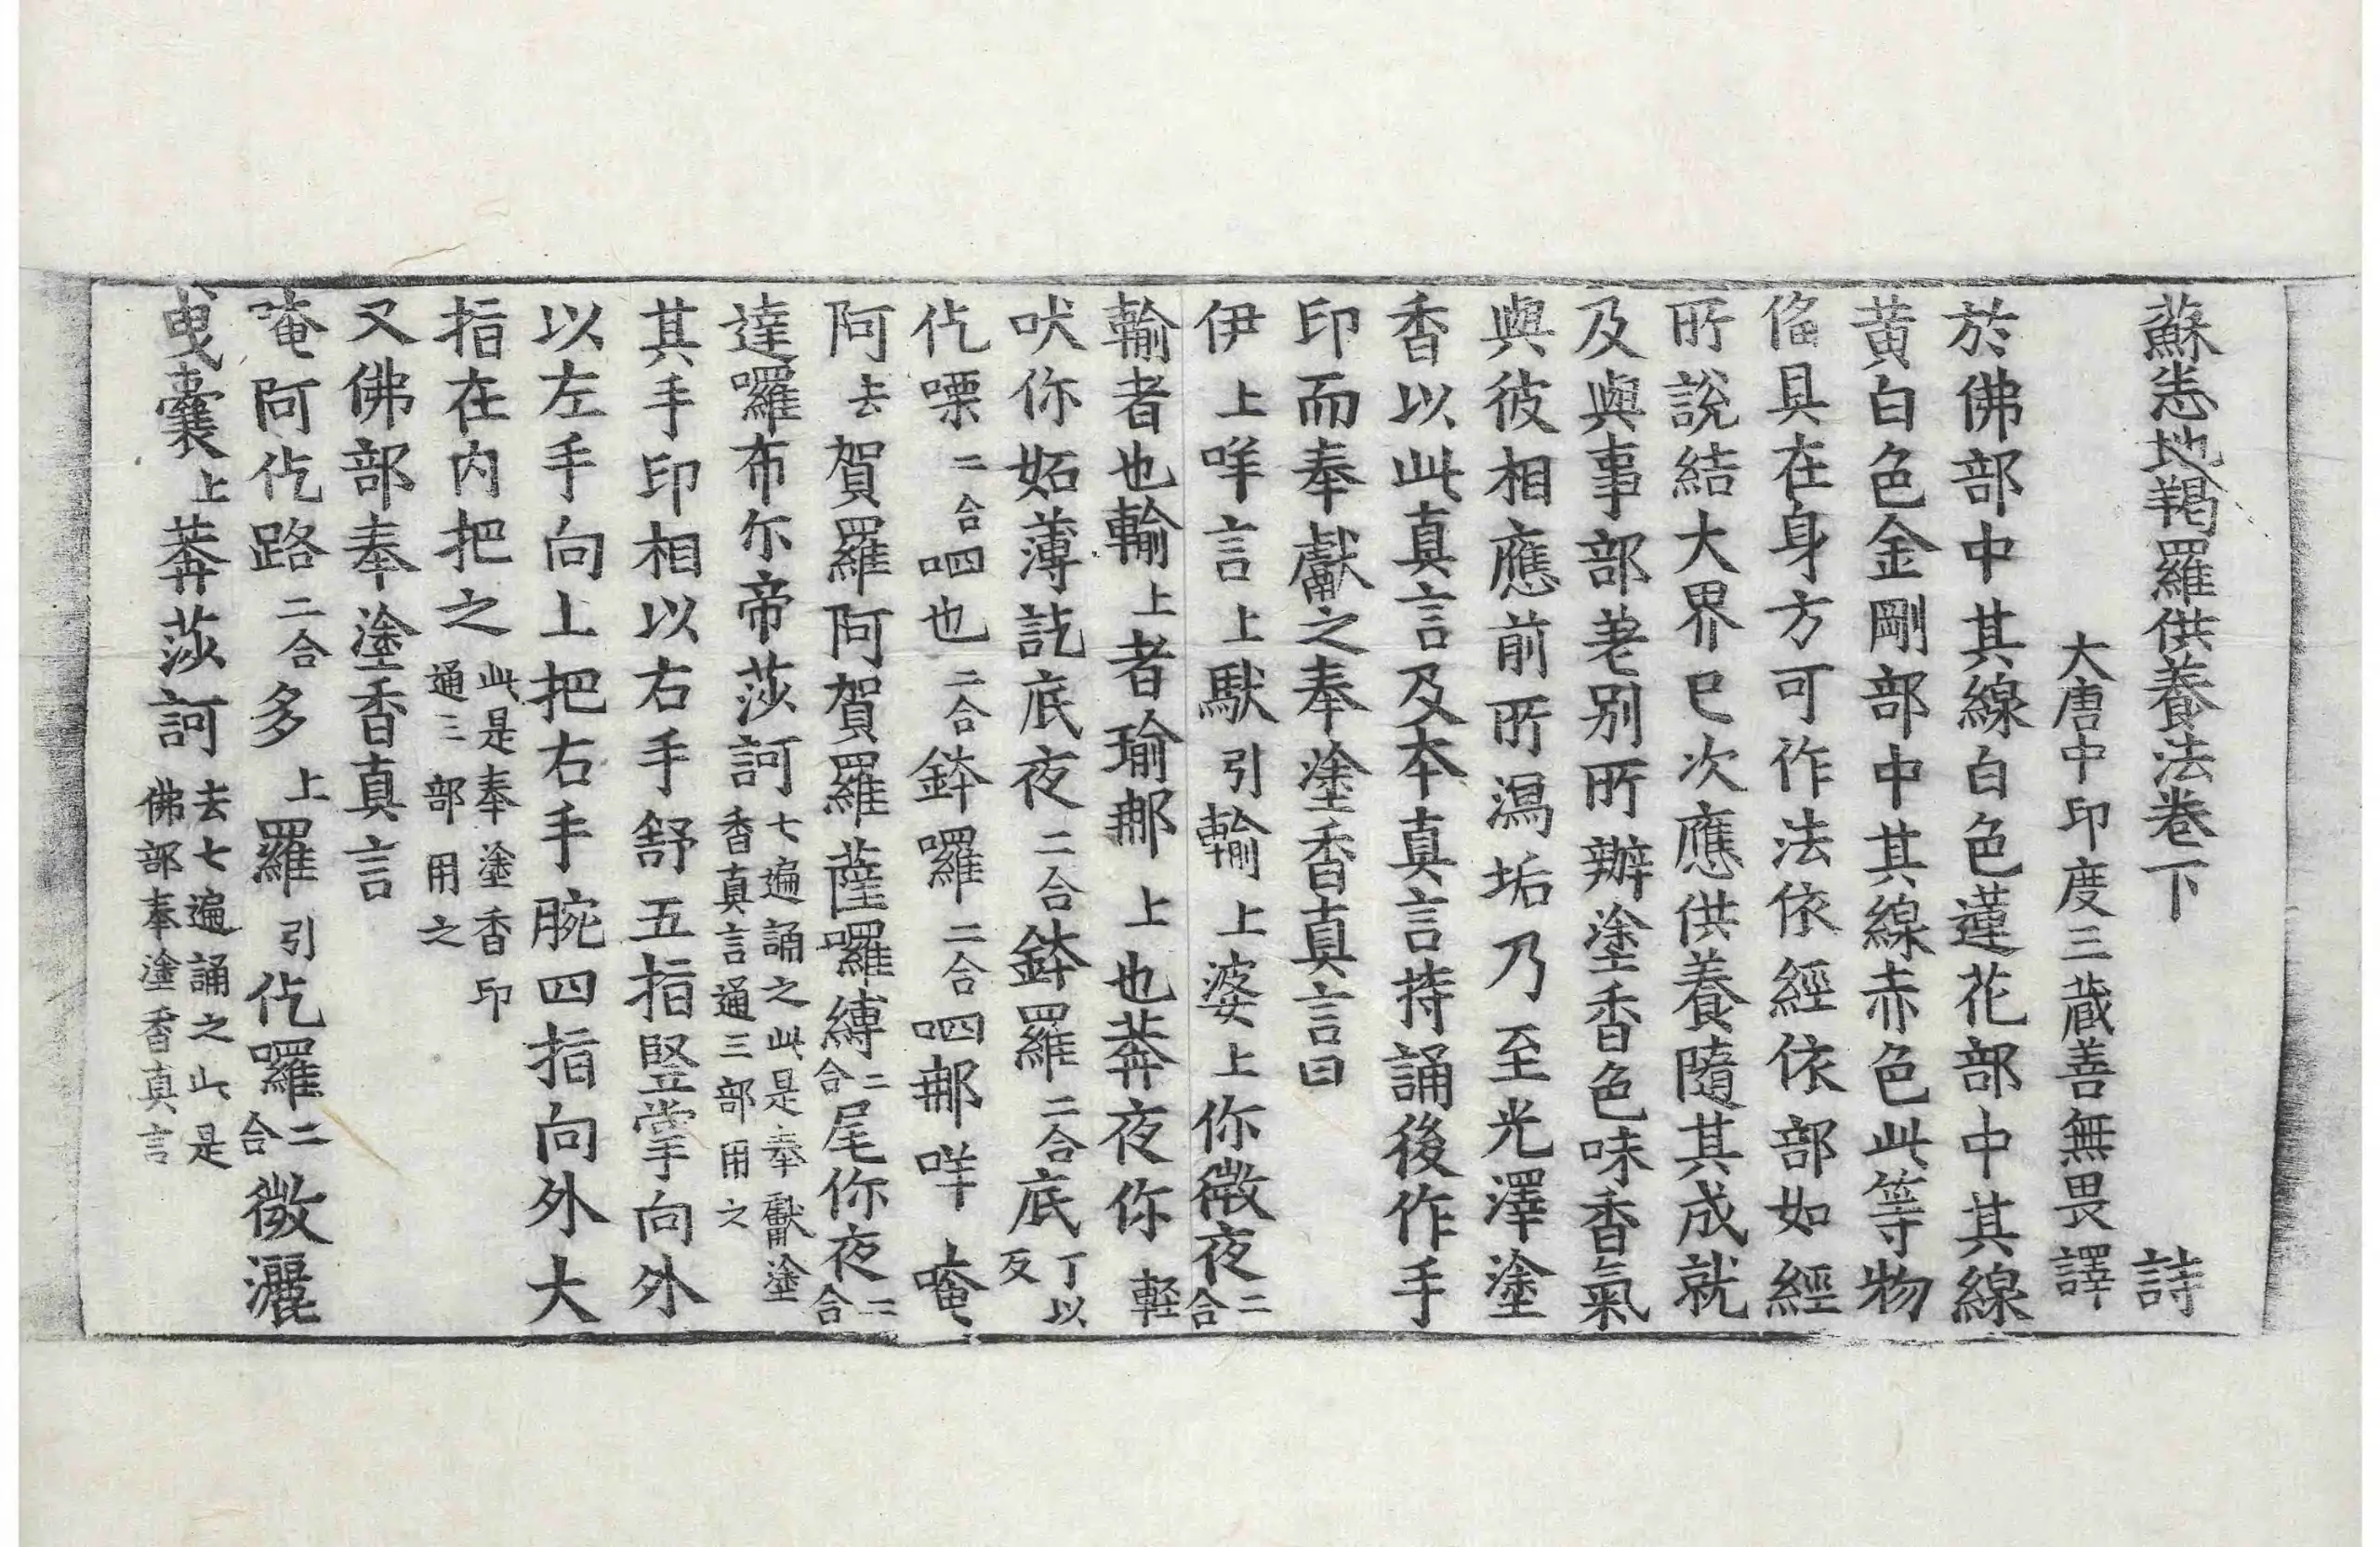 蘇悉地羯羅供養法卷下 詩
大唐中印度三藏善無畏 譯
於佛部中其線白色蓮花部中其線
黃白色金剛部中其線赤色此等物
俻具在身方可作法依經依部如經
所說結大界已次應供養隨其成就
及與事部差別所辦塗香色味香氣
與彼相應前所潟垢乃至光澤塗
香以此真言及本真言持誦後作手
印而奉獻之奉塗香真言曰
伊上咩言上馱引輸上婆上你微夜二合
輸者也輸上者瑜㖠上也莽夜你輕
吠你妬薄訖底夜二合鉢羅二合底丁以反
仡㗚二合呬也二合鉢囉二合呬㖠咩唵
阿去賀羅阿賀羅薩囉縛二合尾你夜二合
達囉布尓帝莎訶七遍誦之此是奉獻塗香真言通三部用之
其手印相以右手舒五指竪掌向外
以左手向上把右手腕四指向外大
指在內把之此是奉塗香印通三部用之
又佛部奉塗香真言
唵阿仡路二合多上羅引仡囉二合微灑
曳囊上莽莎訶去七遍誦之此是佛部奉塗香真言